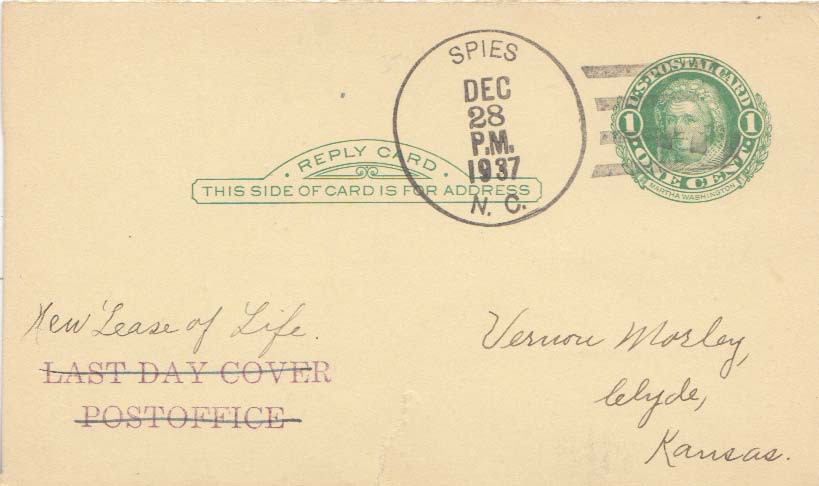 SPIES
DEC
28
P.M.
1937
N. C.
U.S. POSTAL CARD
1 1
· ONE CENT ·
MARTHA WASHINGTON
· REPLY CARD ·
THIS SIDE OF CARD IS FOR ADDRESS
New Lease of Life.
LAST DAY COVER
POSTOFFICE
Vernon Mosley,
Clyde,
Kansas.